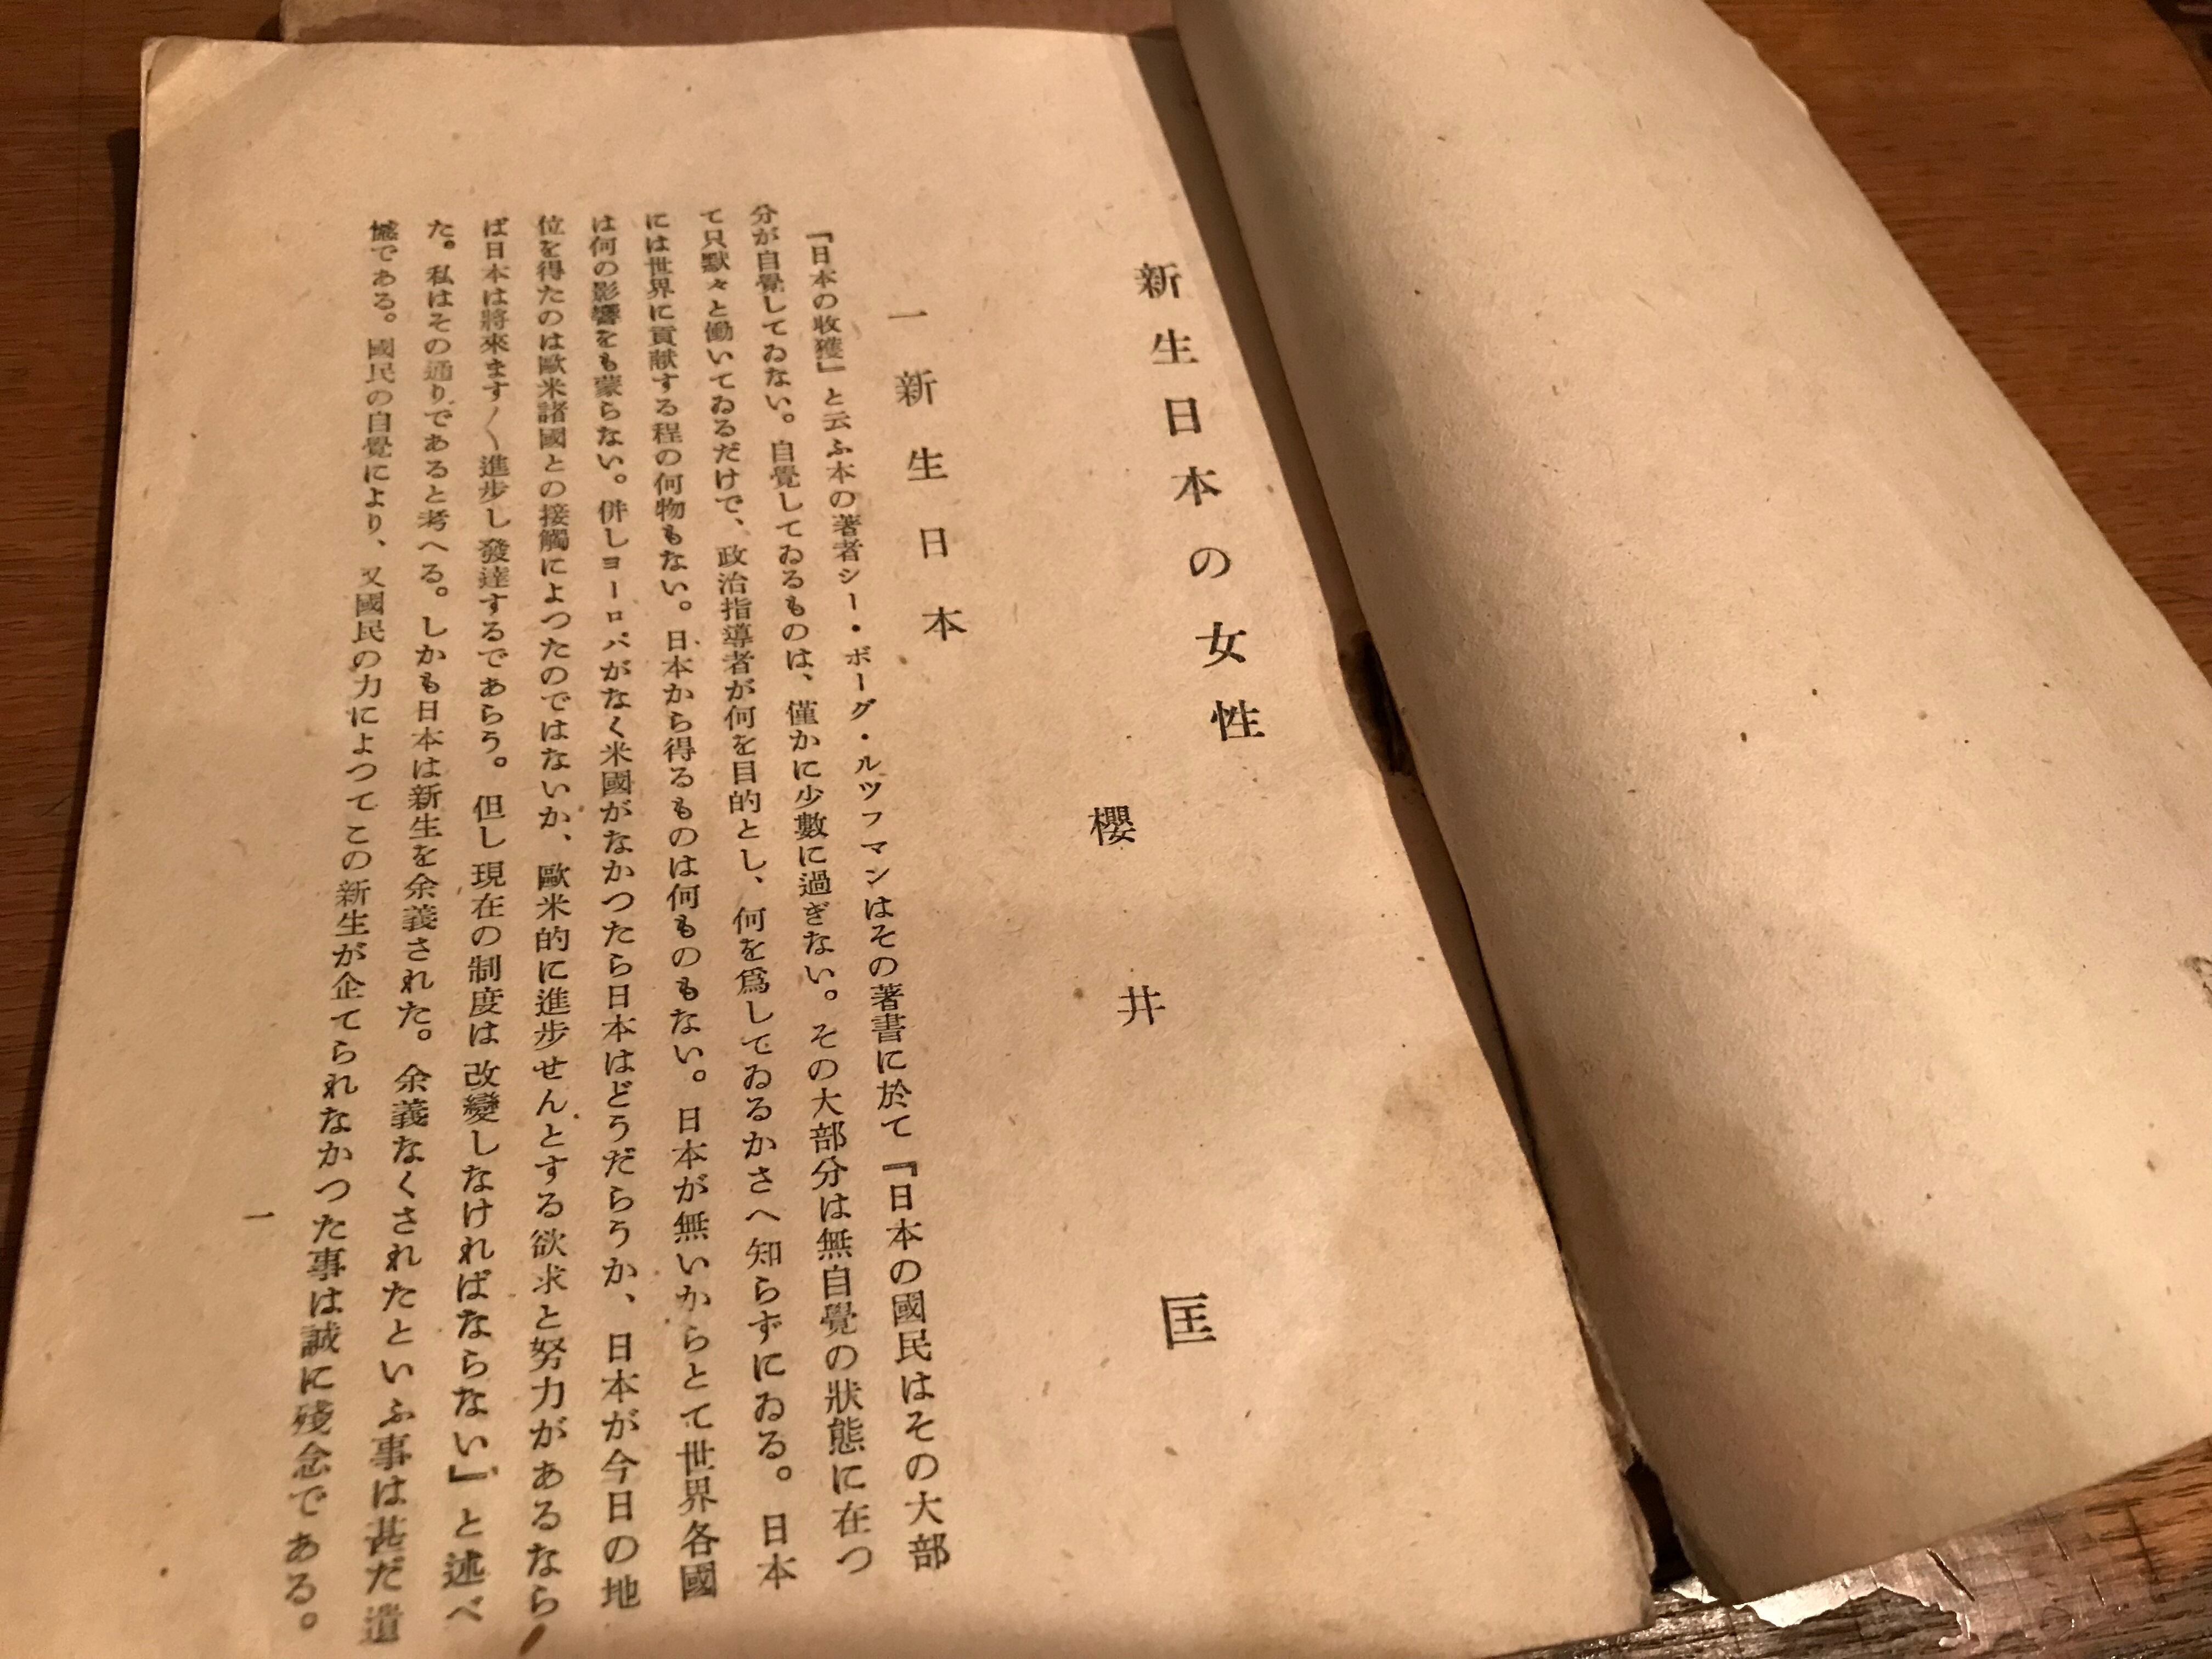 新生日本の女性
櫻井匡
一 新生日本
『日本の收獲』と云ふ本の著者シー・ボーグ・ルツフマンはその著書に於て『日本の國民はその大部
分が自覺してゐない。自覺してゐるものは、僅かに少數に過ぎない。その大部分は無自覺の狀態に在つ
て只默々と働いてゐるだけで、政治指導者が何を目的とし、何を爲してゐるかさへ知らずにゐる。日本
には世界に貢献する程の何物もない。日本から得るものは何ものもない。日本が無いからとて世界各國
は何の影響をも蒙らない。併しヨーロパがなく米國がなかつたら日本はどうだらうか、日本が今日の地
位を得たのは歐米諸國との接觸によつたのではないか、歐米的に進步せんとする欲求と努力があるなら
ば日本は將來ます〱進步し發達するであらう。但し現在の制度は改變しなければならない』と述べ
た。私はその通りであると考へる。しかも日本は新生を余義された。余義なくされたといふ事は甚だ遺
憾である。國民の自覺により、又國民の力によつてこの新生が企てられなかつた事は誠に殘念である。
一